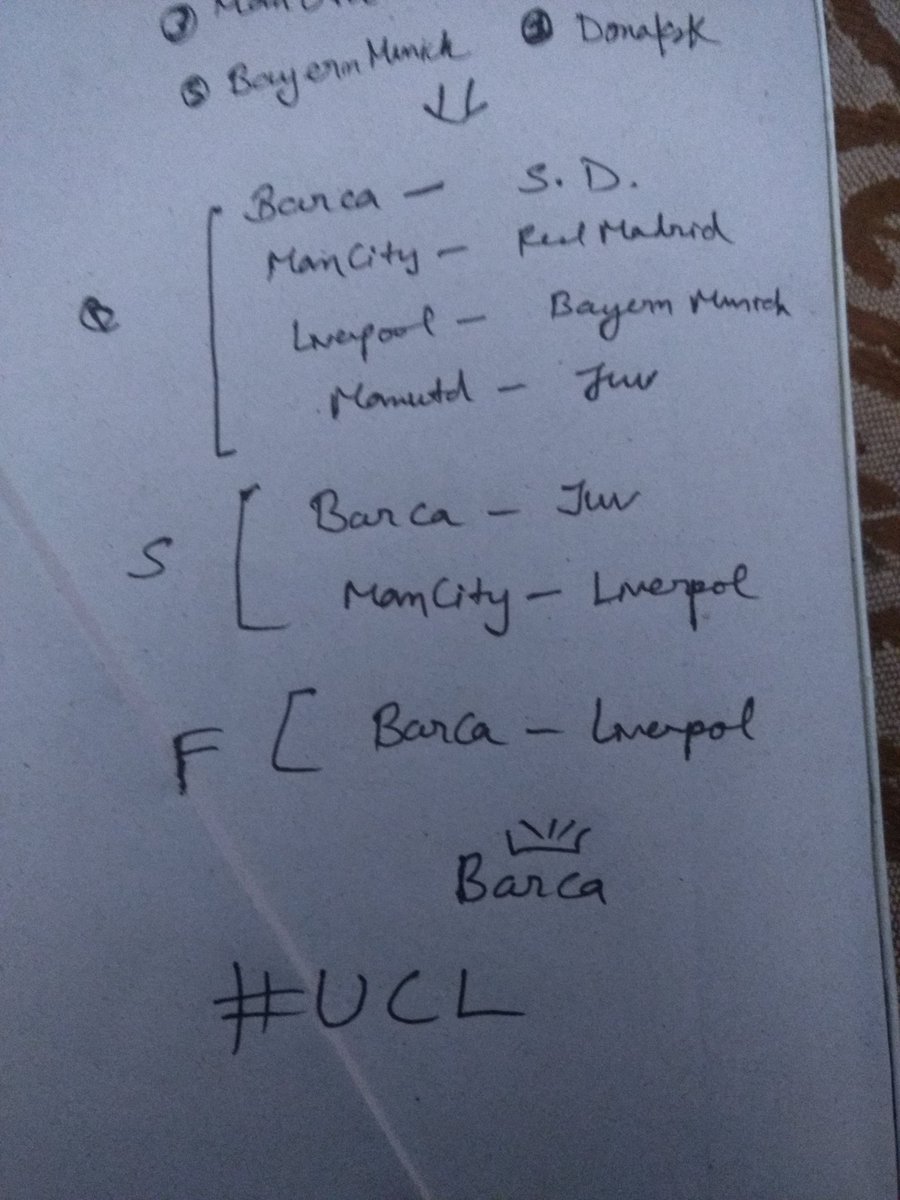 Man
⑤ Bayern Munich ④ Donatsk
Q Barca - S.D.
ManCity - Real Madrid
Liverpool - Bayern Munich
Manutd - Juv
S Barca - Juv
ManCity - Liverpol
F Barca - Liverpol
Barca
#UCL